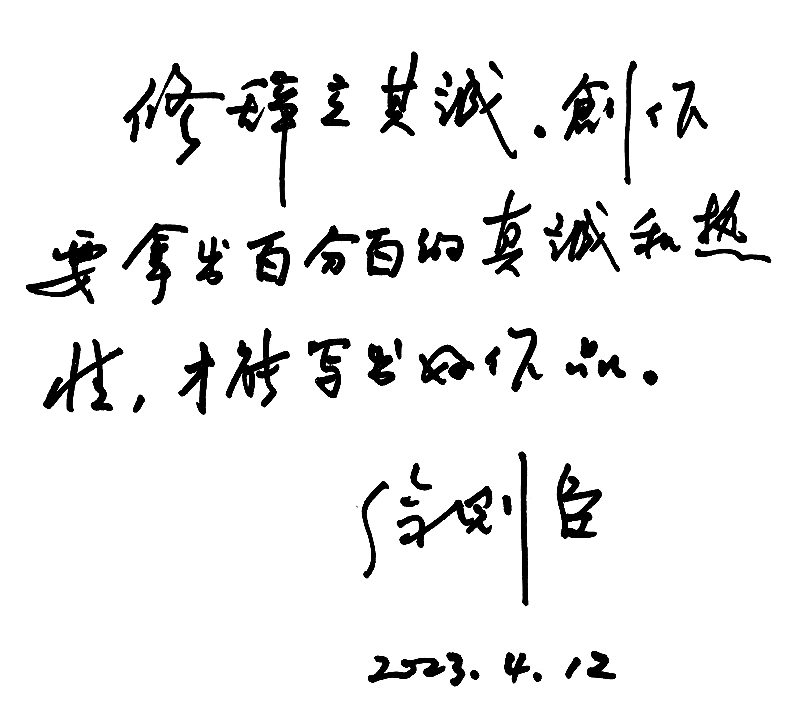 修辞立其誠.創作
要拿出百分百的真誠和热
情,才能写出好作品.
徐则臣
2023.4.12